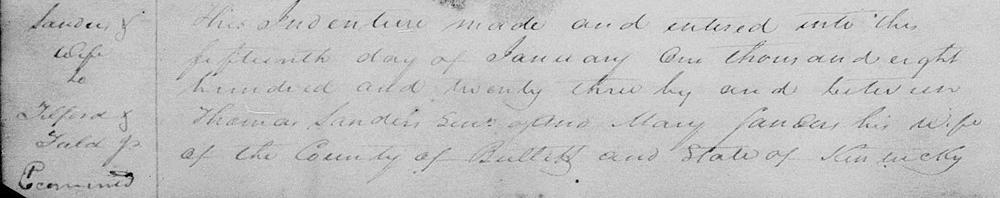 Sanders &
Wife
to
Tilford &
Field Jr
Examined
This Indenture made and entered into this
fifteenth day of January One thousand eight
hundred and twenty three by and between
Thomas Sanders Senr. and Mary Sanders his wife
of the County of Bullitt and State of Kentucky